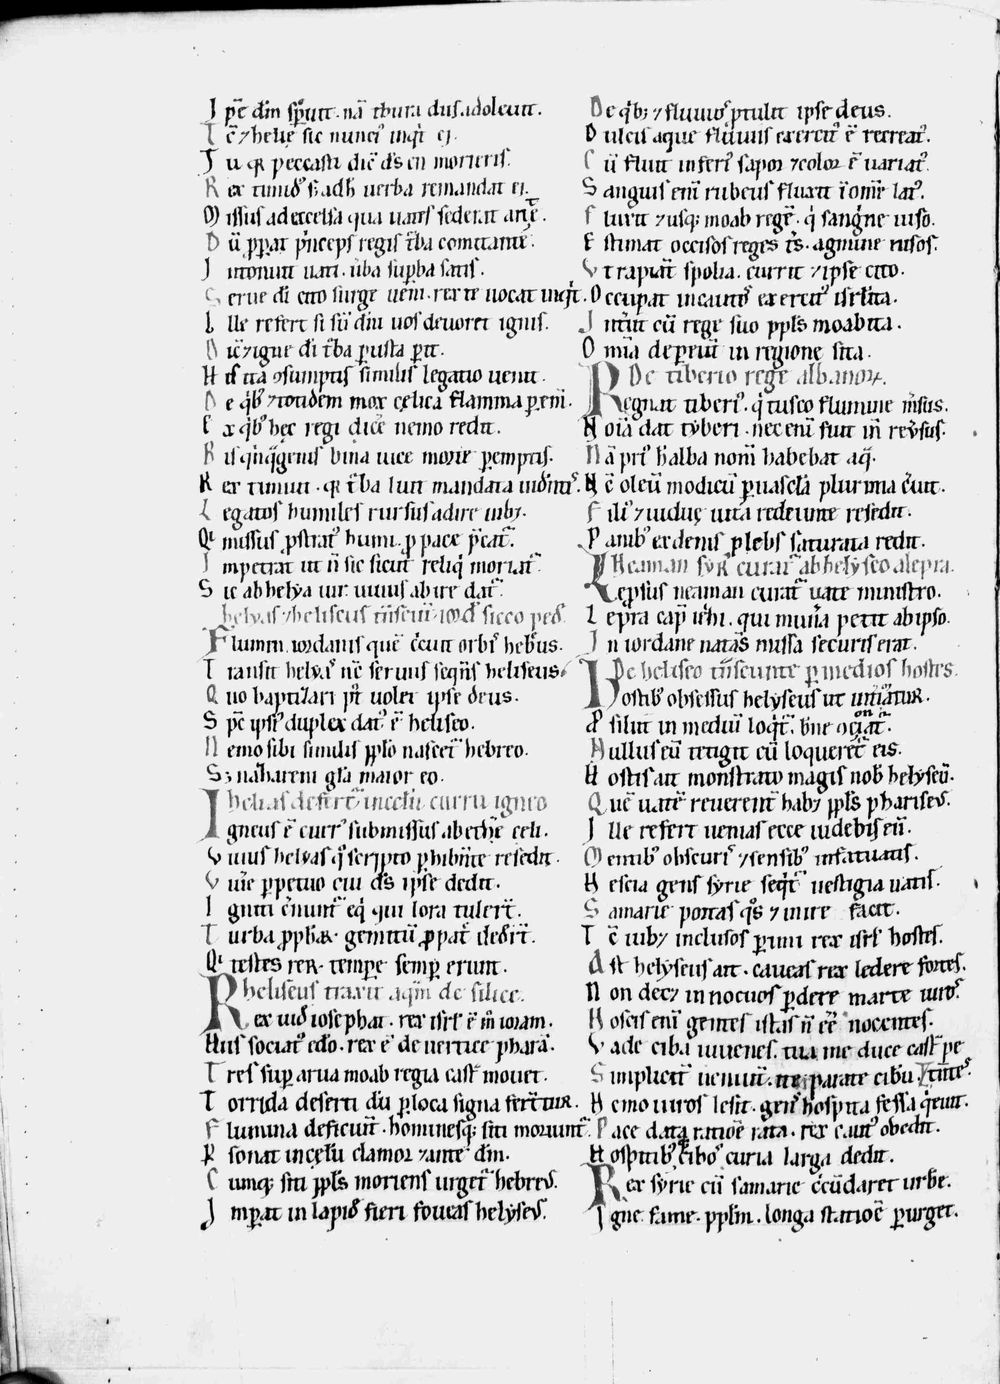 I pẽ dñm spͬuit . nã thura dus adoleuit .
T c̃ ⁊ helie sic nunci᷒ inqͥt ei .
T u qͥ peccasti dic̃ ds̃ en morieris .
R ex timid᷒ s; adh̃ uerba remandat ei .
M issus ad excelsa qua uatis sederat arce .
D ũ ꝓperat pͥnceps regis uͥba comitante .
I ntonuit uati . uͥba suꝑba satis .
S erue di cito surge ueni . rex te uocat inqͥt .
I lle refert si sũ dñi uos deuoret ignis .
D ic̃ ⁊ igne di tͥba ꝑusta ꝑit .
H is ita ɔsumptis similis legatio uenit .
D e qͥb; ⁊ totidem mox celica flamma ꝑemͥ .
E x qͥb᷒ hec regi dicẽ nemo redit .
B is qͥnqͣgenis bina uice morte ꝑemptis .
R ex timuit . qͥ tͥba luit mandata
L egatos humiles rursus adire iub; .
Qͥ missus ꝓstrat᷒ humi . ꝓ pace pͥcat .
I mpetrat ut ñ sic sicut reliqͥ moriat᷑ .
S ic ab helya uir uiuus abire dat᷑ .
helyas ⁊ heliseus tͣnseunt iord᷒ sicco ped᷒
F lumin iordanis quẽ cͥcuit orbis hebr᷒us .
T ransit helyas nc̃ seruus seqͥns heliseus .
Q uo baptizari pͥt uolet ipse deus .
S pc̃ ipsi᷒ duplex dat᷒ ẽ heliseo .
N emo sibi similis ppl̃o nascet᷑ hebreo .
S; nabareni grã maior eo .
helias defert᷑ in celũ curru igneo
I gneus ẽ curr᷒ submissus ab ethere celi .
V iuus helyas qͦ scripto ꝑhibente resedit .
V iue ꝑpetuo cui ds̃ ipse dedit .
I gniti cͥnunt᷑ eqͥ qui lora tulerũt .
T urba ꝓphꝫ . gemitũ ꝓpat᷑ dederũt .
Qͥ testes tempore semꝑ erunt .
heliseus traxit aqͣm de silice .
R ex uid iosephat . rex isrl̃ ẽ m̃ ioram .
H uis sociat᷒ edo . rex ẽ de uertice pharã .
T res suꝑ arua moab regia castͣ mouet .
T orrida deserti dũ ꝑ loca signa ferunt᷑ .
F lumina deficiũt . hominesq; siti moriunt᷑ .
P sonat in celũ clamor ⁊ ante dm̃ .
C umq; siti ppl̃s moriens urget᷑ hebreus .
I mpat in lapid᷒ fieri foueas helyseus .
D e qͥb; ⁊ fluuios ptulit ipse deus .
D ulcis aque fluuiis exercit᷒ ẽ recreat᷒ .
C ũ fluit inferi᷒ sapor ⁊ color ẽ uariat᷒ .
S anguis enĩ rubeus fluxit ĩ omẽ lat᷒ .
F luxit ⁊ usq; moab regẽ . qͥ sangͥne uiso .
E stimat occisos reges tͥs . agmine rusos .
V t rapiat spolia . currit ⁊ ipse cito .
O ccupat incaut᷒ exercit᷒ isrl̃ita .
I ntͥit cũ rege suo ppl̃s moabita .
O mĩa dePereũt in regione sita .
De tiberio rege albanoꝝ .
R egnat tiberi᷒ . qͥ tusco flumine mͥsus .
N oĩa dat tyberi . nec enĩ fuit iñ reuͥsus .
N ã pri᷒ halba nom̃ habebat aqͣ .
H c̃ oleũ modicũ ꝑ uascl̃a plurima cͥuit .
F ili᷒ ⁊ uidue uita redeunte resedit .
P anib᷒ ex denis plebs saturata redit .
Neaman syr᷒ curat᷑ ab helyseo a lepra .
L epsius neaman curat᷑ uate ministro .
L epͥra cap̃ iezi . qui muñra petit ab ipso .
I n iordane natans missa securis erat .
De heliseo tͣnseunte ꝑ medios hostes .
H ostib᷒ obsessus helyseus ut
P siluit in mediũ loqͥt᷑ .
N ullus eũ tetigit cũ loqueret᷑ eis .
H ostis ait monstrato magis nob̃ helyseũ .
Q uẽ uatẽ reuerent᷑ hab; ppl̃s phariseus .
I lle refert uenias ecce uidebis eũ .
M entib᷒ obscuris ⁊ sensib᷒ infatuatis .
N escia gens syrie seqͥt᷑ uestigia uatis .
S amarie portas qͦs ⁊ inire facit .
T c̃ iub; inclusos ꝑimi rex isrl̃ hostes .
A st helyseus ait . caueas rex ledere fortes .
N on dec; innocuos ꝑdere marte uiros .
N oscis enĩ gentes istas ñ ẽẽ nocentes .
V ade ciba iuuenes . tua me duce castͣ pe
S impliciter ueniũt . parate cibũ
N emo uiros lesit . gens hospita fessa qͥeuit .
P ace data ratioẽ rata . rex caut᷒ obedit .
H ospitib᷒ cibos curia larga dedit .
R ex syrie cũ samarie cͥcũdaret urbẽ .
I gne fame . ppl̃m . longa statioẽ ꝑurget .